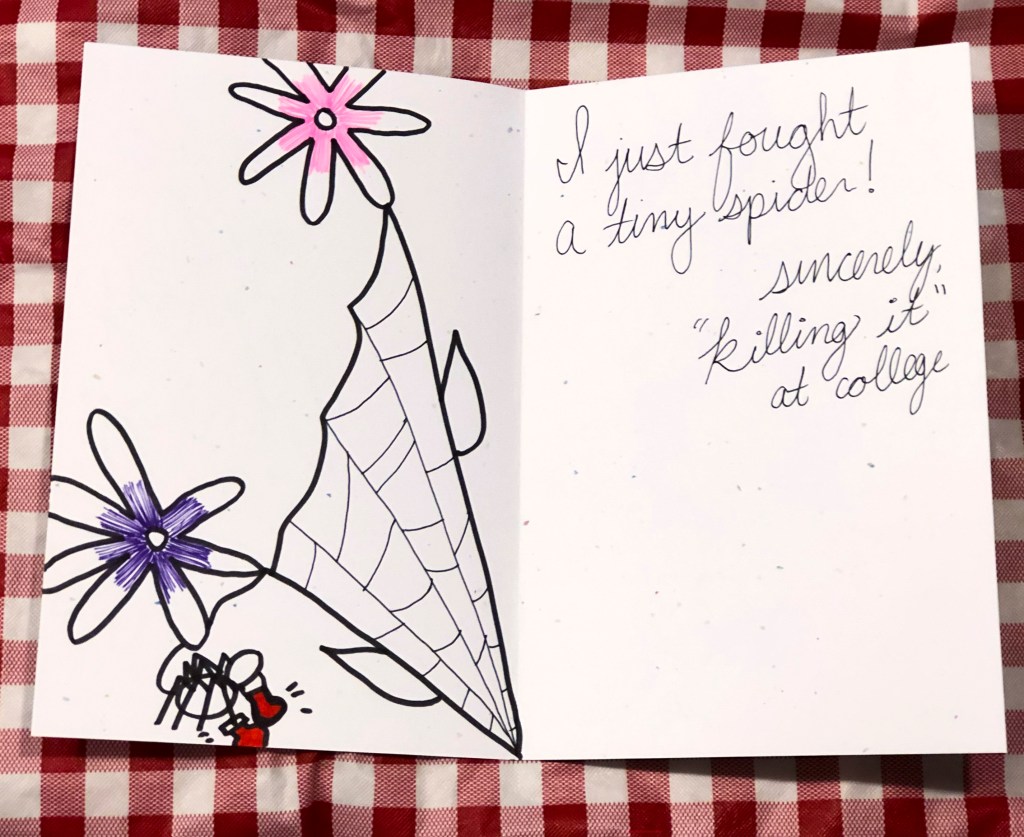 I just fought
a tiny spider!
sincerely,
"killing it"
at college